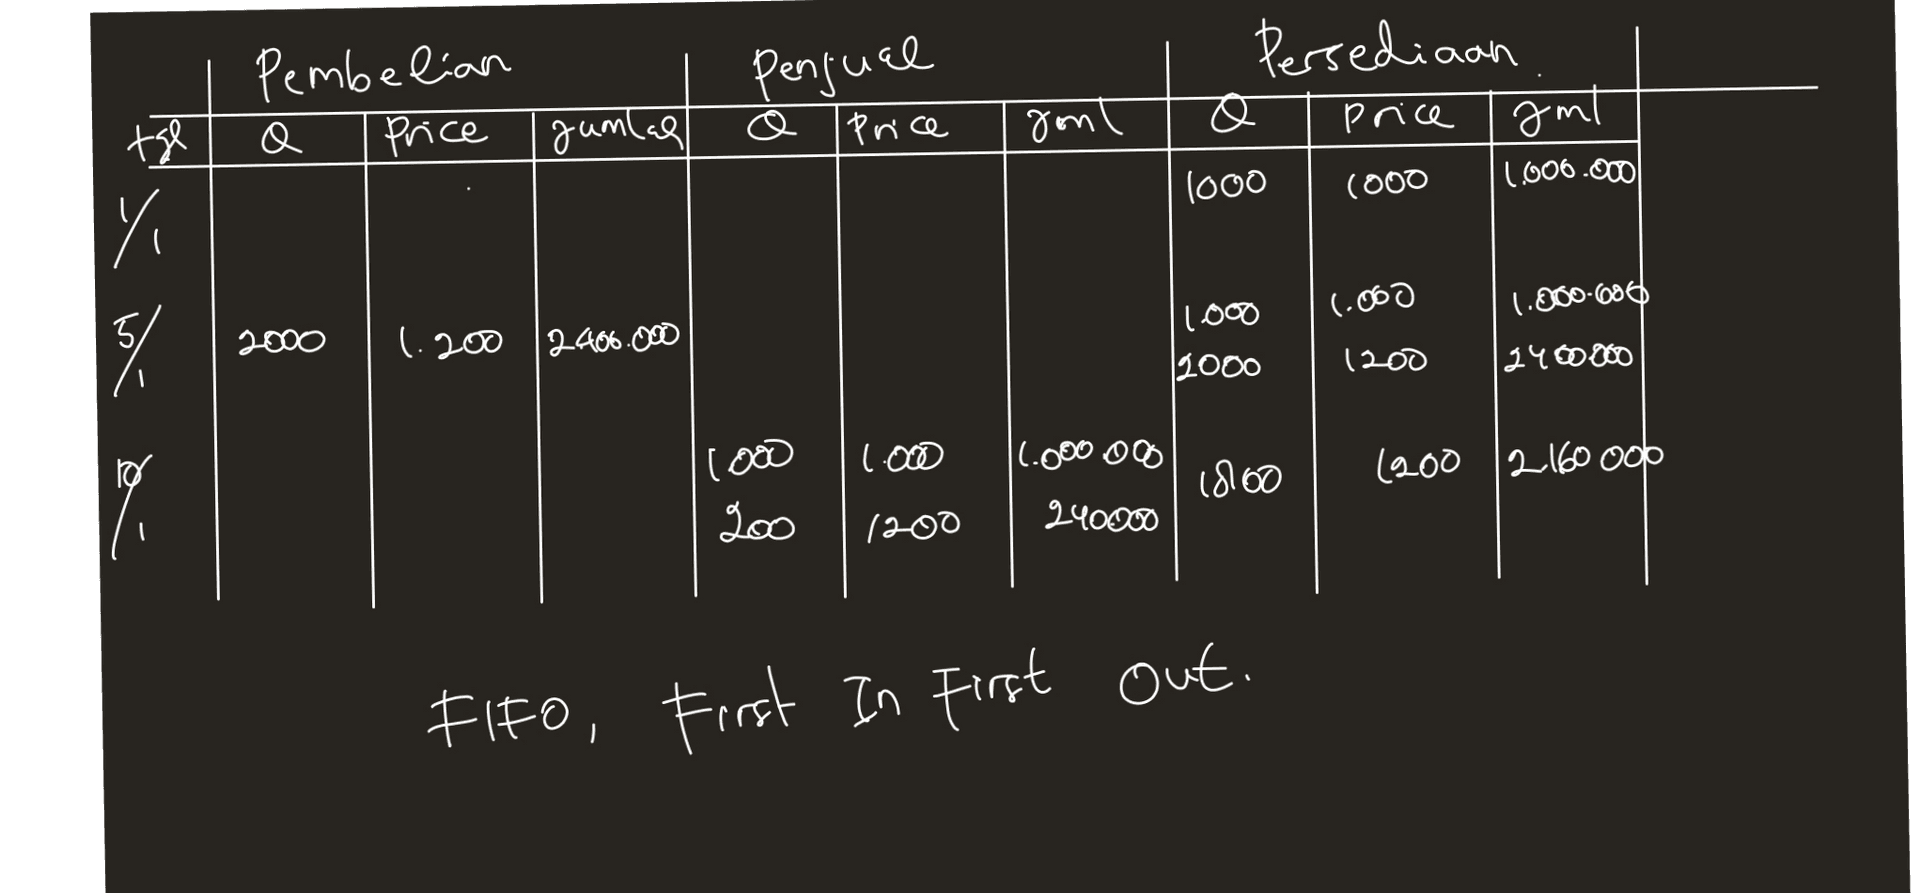 Pembelian Penjual Persediaan.
tgl Q Price Jumlah Q Price Jml Q Price Jml
1/1 1000 1000 1.000.000
5/1 2000 1.200 2400.000 1.000 1.000 1.000.000
2000 1200 2400000
10/1 1.000 1.000 1.000.000 1800 1200 2160000
200 1200 240000
FIFO, First In First Out.